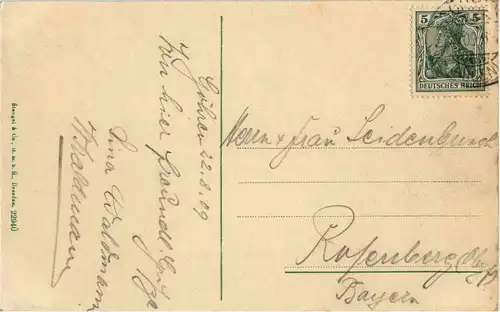 Göhren 22.8.09
Von hier freundl. Gruß
Lina Waldmann
Waldmann
Stengel & Co., G. m. b. H., Dresden. 22940
5 5
DEUTSCHES REICH
Herrn u Frau Seidenbusch
Rosenberg
Bayern